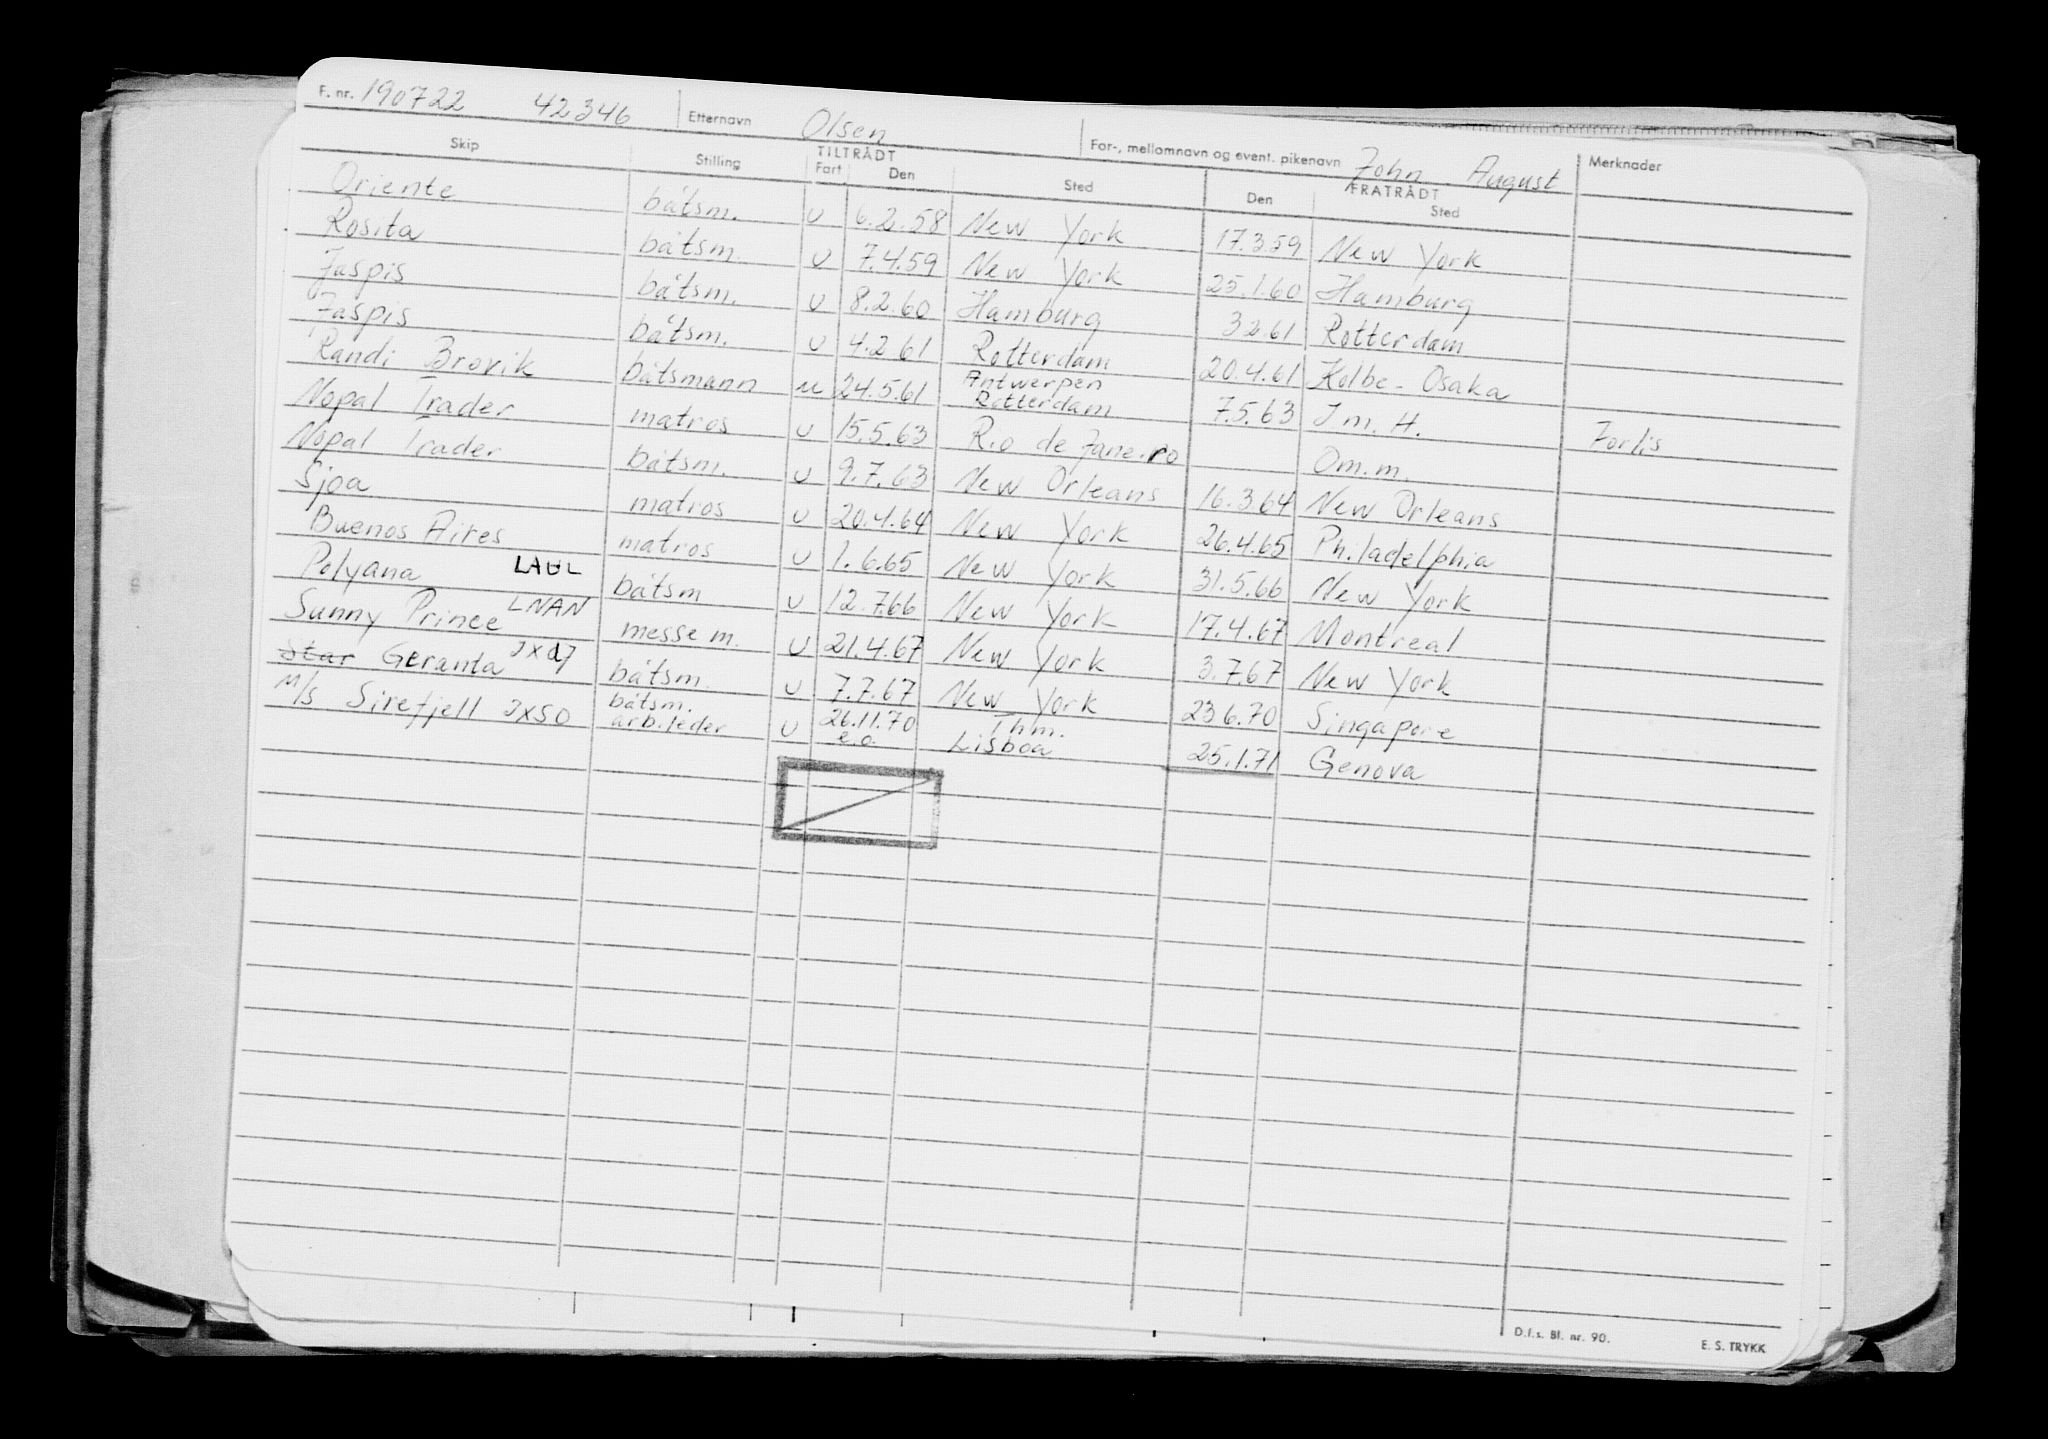 F. nr. 190722 42346 Etternavn Olsen For-, mellomnavn og event. pikenavn John August Merknader
Skip Stilling TILTRÅDT Fart Den Sted FRATRÅDT Den Sted
Oriente båtsm. U 6.2.58 New York 17.3.59 New York
Rosita båtsm. U 7.4.59 New York 25.1.60 Hamburg
Jaspis båtsm. U 8.2.60 Hamburg 3.2.61 Rotterdam
Jaspis båtsm. U 4.2.61 Rotterdam 20.4.61 Kolbe-Osaka
Randi Brøvik båtsmann u 24.5.61 Antwerpen Rotterdam 7.5.63 I m. H. Forlis
Nopal Trader matros U 15.5.63 Rio de Janeiro Om.m.
Nopal Trader båtsm. U 9.7.63 New Orleans 16.3.64 New Orleans
Sjoa matros U 20.4.64 New York 26.4.65 Philadelphia
Buenos Aires matros U 1.6.65 New York 31.5.66 New York
Polyana LAUL båtsm U 12.7.66 New York 17.4.67 Montreal
Sunny Prince LNAN messe m. U 21.4.67 New York 3.7.67 New York
Star Geranta JXQJ båtsm. U 7.7.67 New York 23.6.70 Singapore
M/s Sirefjell JXSO båtsm. arb.leder U 26.11.70 e.o. Thm. Lisboa 25.1.71 Genova
D.f.s. Bl. nr. 90. E. S. TRYKK